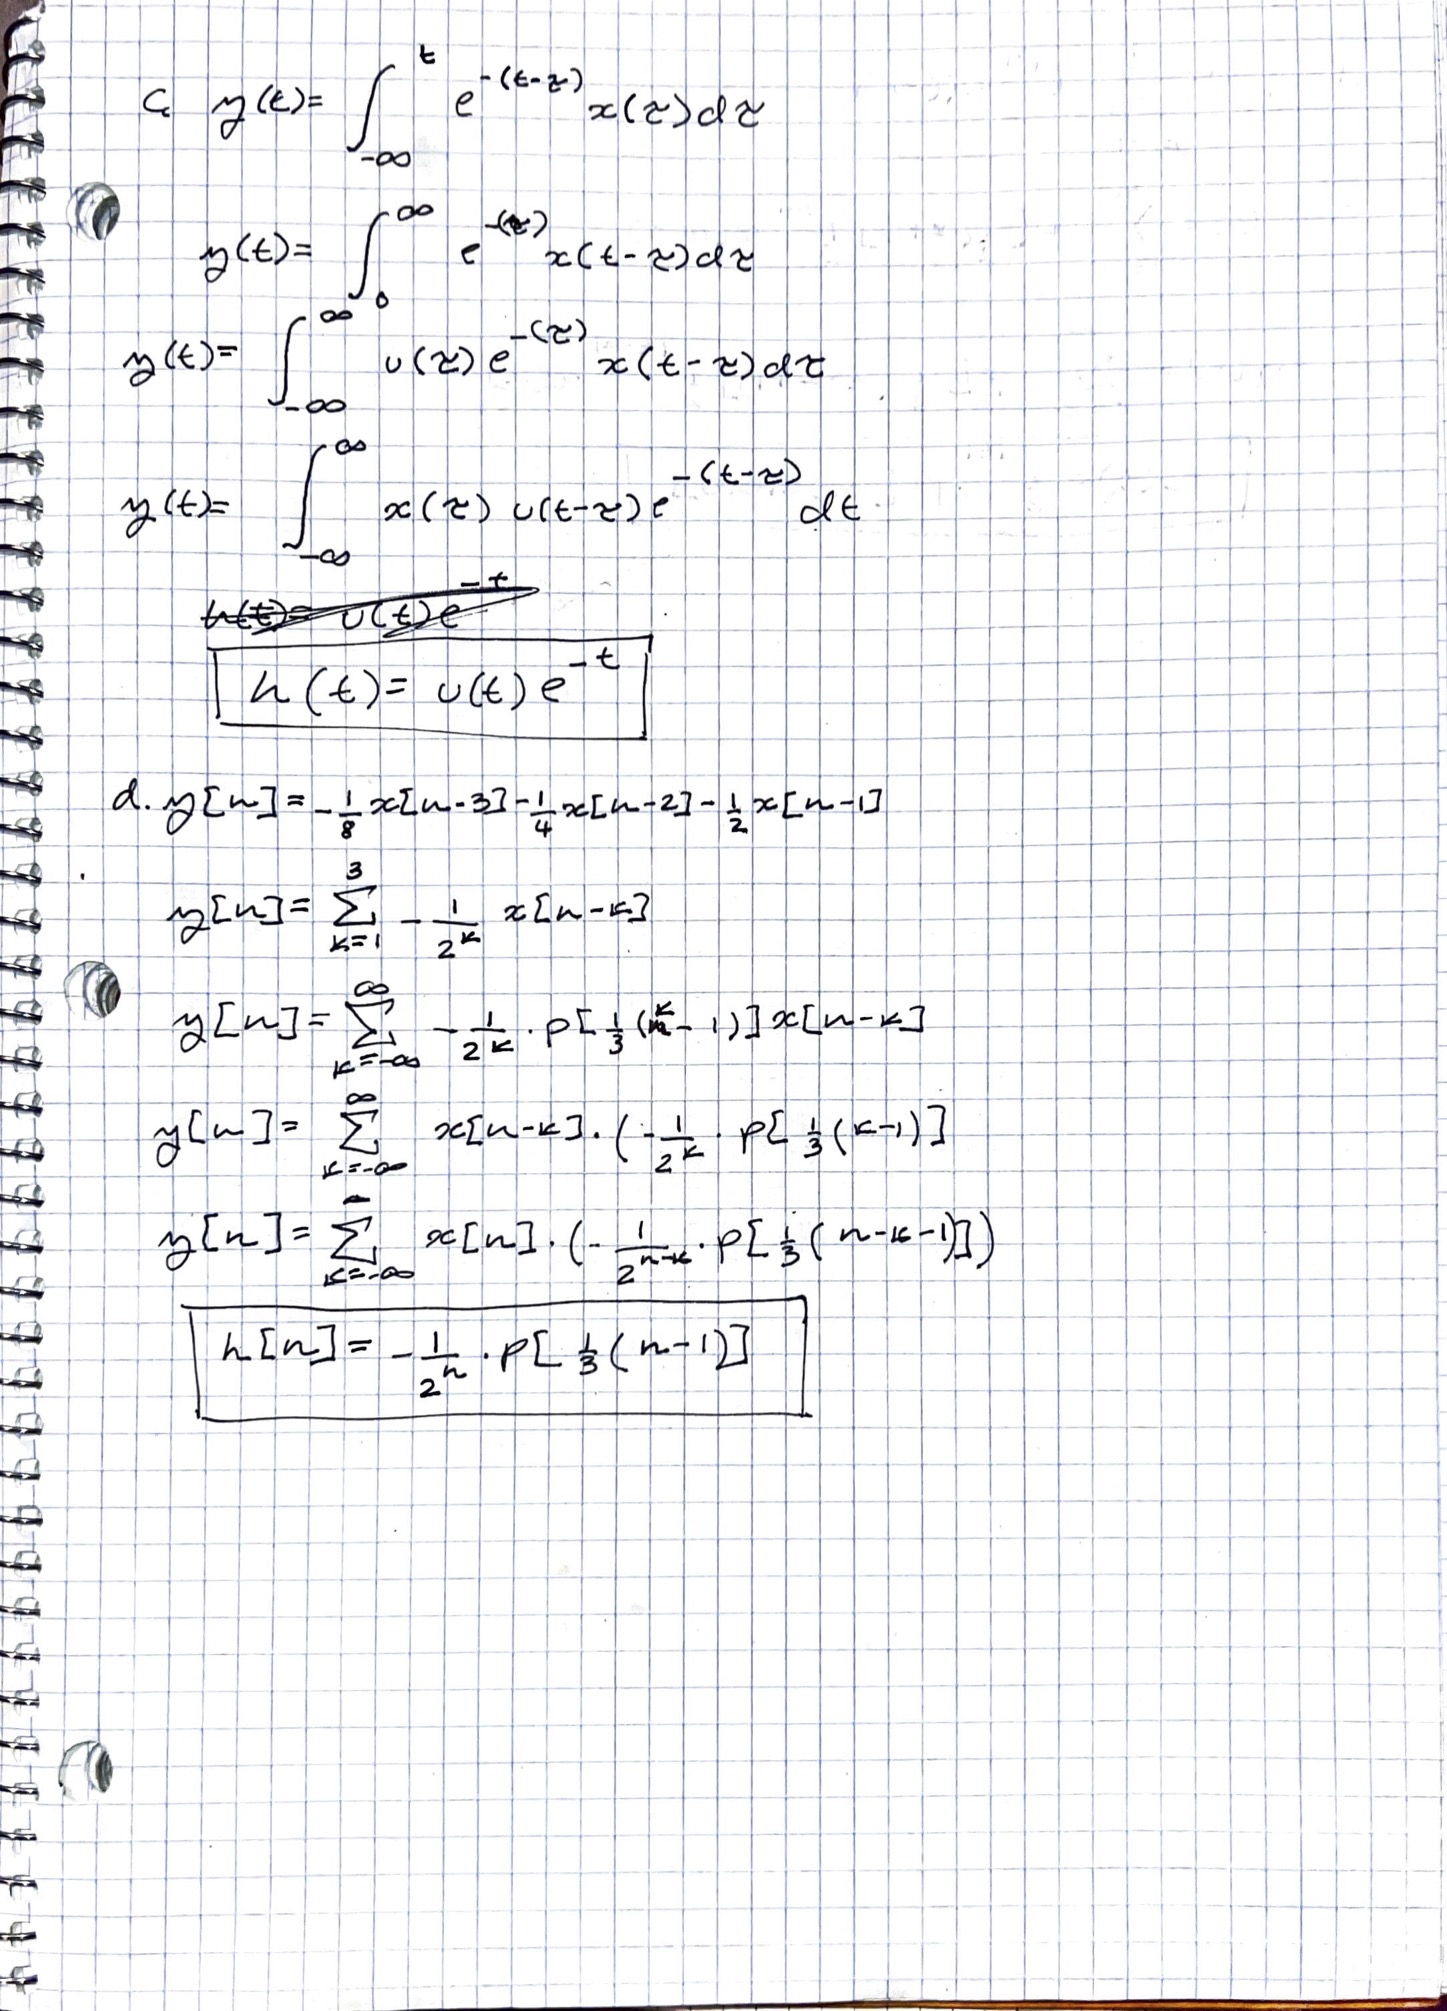 c. y(t)= ∫_{-∞}^{t} e^{-(t-τ)} x(τ)dτ
y(t)= ∫_{0}^{∞} e^{-(τ)} x(t-τ)dτ
y(t)= ∫_{-∞}^{∞} u(τ)e^{-(τ)} x(t-τ)dτ
y(t)= ∫_{-∞}^{∞} x(τ) u(t-τ)e^{-(t-τ)} dt
h(t)= u(t)e^{-t}
h(t)= u(t)e^{-t}
d. y[n]= -1/8 x[n-3] -1/4 x[n-2] -1/2 x[n-1]
y[n]= Σ_{k=1}^{3} -1/2^k x[n-k]
y[n]= Σ_{k=-∞}^{∞} -1/2^k · p[1/3(k-1)] x[n-k]
y[n]= Σ_{k=-∞}^{∞} x[n-k]·(-1/2^k · p[1/3(k-1)]
y[n]= Σ_{k=-∞} x[n]·(-1/2^{n-k} · p[1/3(n-k-1)])
h[n]= -1/2^n · p[1/3(n-1)]